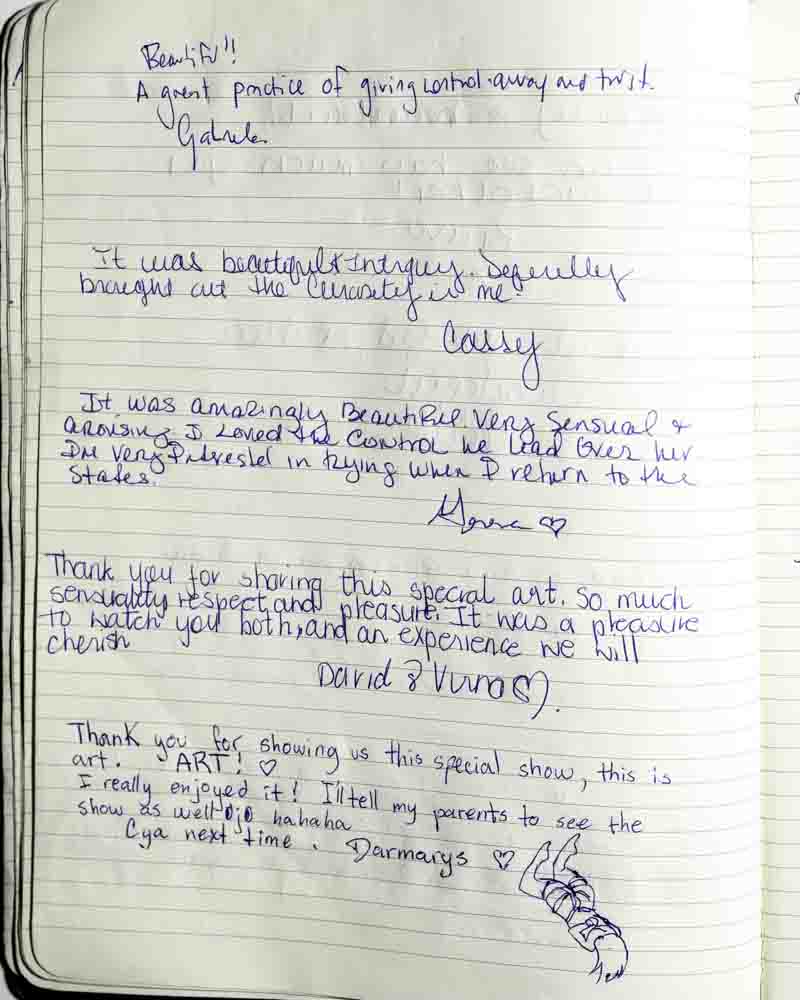 Beautiful!!
A great practice of giving control away and trust.
It was beautiful & Intriguy. Defenilly
brought out the Curiosity in me.
Cassy
It was amazingly Beautiful Very Sensual &
arousing I Loved the Control he had Over her
I'm very Intrested in trying when I return to the
States.
Thank you for sharing this special art. So much
sensuality, respect, and pleasure. It was a pleasure
to watch you both, and an experience we will
cherish
David &
Thank you for showing us this special show, this is
art. ART! ♡
I really enjoyed it! I'll tell my parents to see the
show as well hahaha
Cya next time. Darmarys ♡